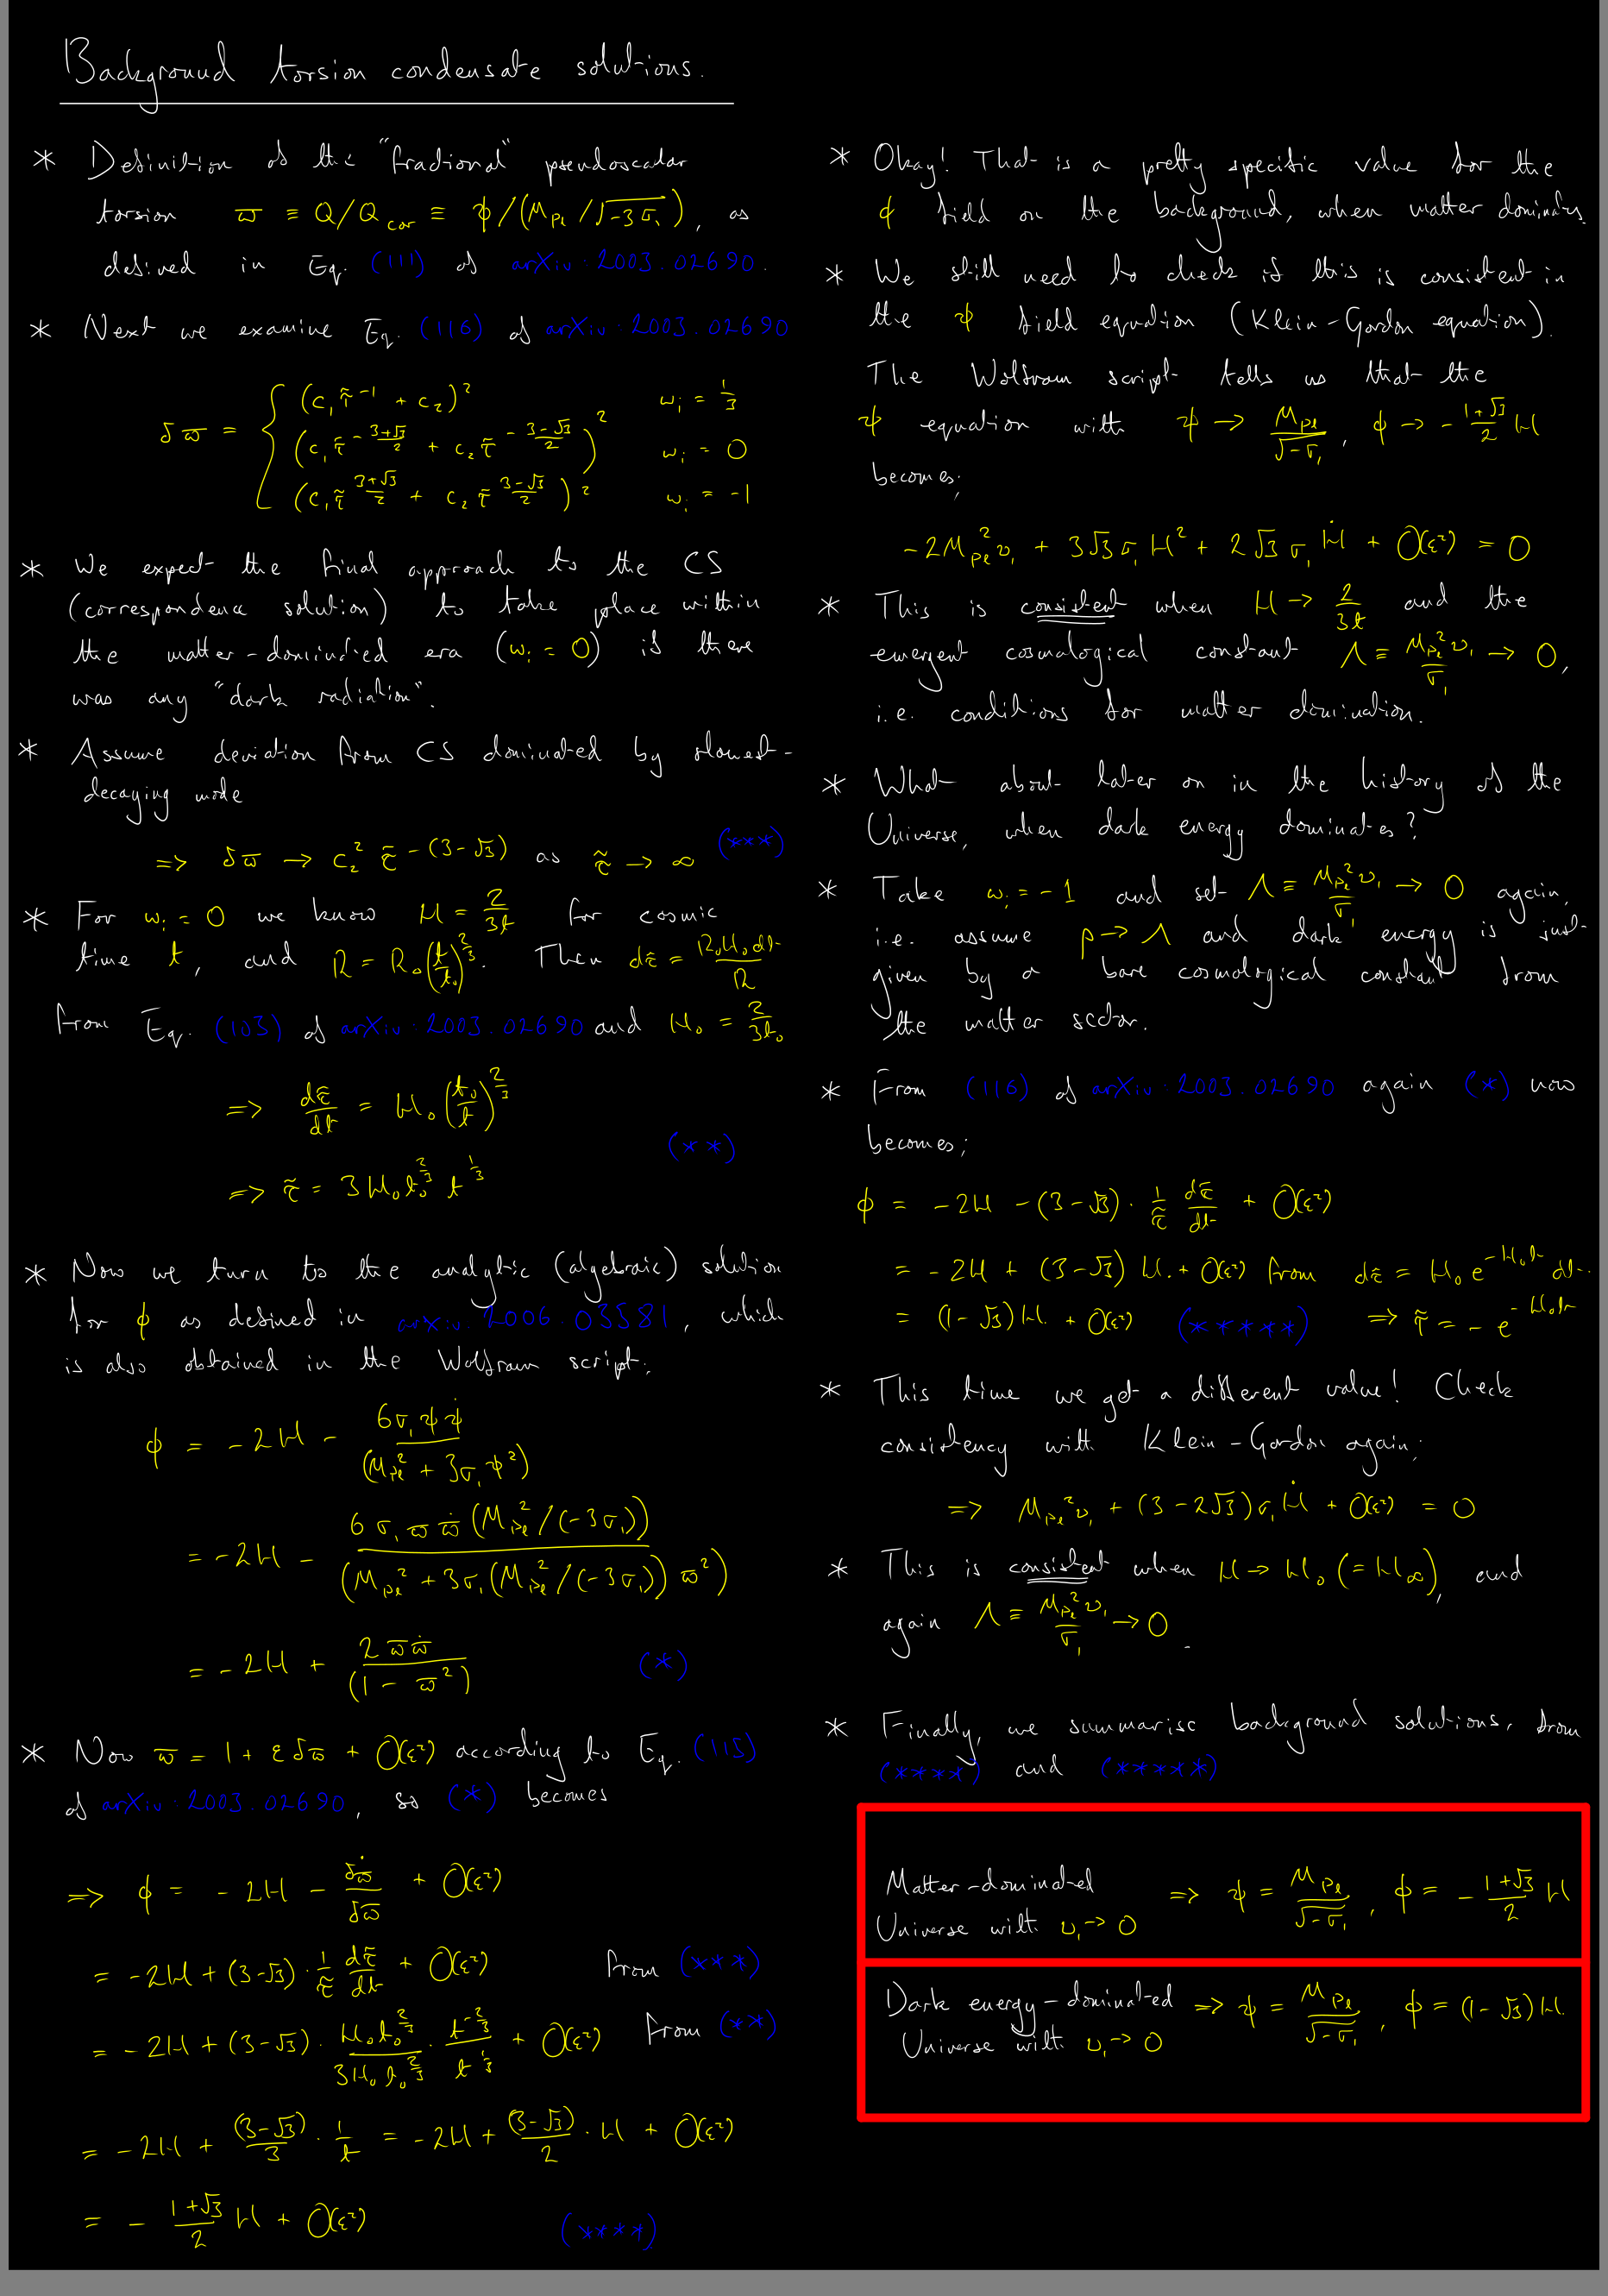 Background torsion condensate solutions.
* Definition of the "fractional" pseudoscalar
torsion ϖ ≡ Q/Q_cor ≡ ψ/(M_Pl/√(-3σ₁)), as
defined in Eq. (111) of arXiv:2003.02690.
* Next we examine Eq. (116) of arXiv:2003.02690
δϖ = { (c₁ τ̃^(-1) + c₂)² w_i = 1/3
(c₁ τ̃^(-(3+√3)/2) + c₂ τ̃^(-(3-√3)/2))² w_i = 0
(c₁ τ̃^((3+√3)/2) + c₂ τ̃^((3-√3)/2))² w_i = -1
* We expect the final approach to the CS
(correspondence solution) to take place within
the matter-dominated era (w_i = 0) if there
was any "dark radiation".
* Assume deviation from CS dominated by slowest-
decaying mode
=> δϖ → c₂² τ̃^(-(3-√3)) as τ̃ → ∞ (***)
* For w_i = 0 we know H = 2/(3t) for cosmic
time t, and R = R₀(t/t₀)^(2/3). Then dτ̃ = R₀H₀dt/R
from Eq. (103) of arXiv:2003.02690 and H₀ = 2/(3t₀)
=> dτ̃/dt = H₀(t₀/t)^(2/3)
=> τ̃ = 3H₀t₀^(2/3) t^(1/3) (**)
* Now we turn to the analytic (algebraic) solution
for ϕ as defined in arXiv:2006.03581, which
is also obtained in the Wolfram script:
ϕ = -2H - 6σ₁ψψ̇/(M_Pl² + 3σ₁ψ²)
= -2H - 6σ₁ϖϖ̇(M_Pl²/(-3σ₁))/(M_Pl² + 3σ₁(M_Pl²/(-3σ₁))ϖ²)
= -2H + 2ϖϖ̇/(1 - ϖ²) (*)
* Now ϖ = 1 + εδϖ + O(ε²) according to Eq. (115)
of arXiv:2003.02690, so (*) becomes
=> ϕ = -2H - δϖ̇/δϖ + O(ε²)
= -2H + (3-√3)·(1/τ̃)(dτ̃/dt) + O(ε²) from (***)
= -2H + (3-√3)·(H₀t₀^(2/3))/(3H₀t₀^(2/3))·(t^(-2/3))/(t^(1/3)) + O(ε²) from (**)
= -2H + (3-√3)/3·1/t = -2H + (3-√3)/2·H + O(ε²)
= -(1+√3)/2 H + O(ε²) (****)
* Okay! That is a pretty specific value for the
ϕ field on the background, when matter dominates.
* We still need to check if this is consistent in
the ψ field equation (Klein-Gordon equation).
The Wolfram script tells us that the
ψ equation with ψ → M_Pl/√(-σ₁), ϕ → -(1+√3)/2 H
becomes;
-2M_Pl²υ₁ + 3√3σ₁H² + 2√3σ₁Ḣ + O(ε²) = 0
* This is consistent when H → 2/(3t) and the
emergent cosmological constant Λ ≡ M_Pl²υ₁/σ₁ → 0,
i.e. conditions for matter domination.
* What about later on in the history of the
Universe, when dark energy dominates?
* Take w_i = -1 and set Λ ≡ M_Pl²υ₁/σ₁ → 0 again,
i.e. assume ρ → Λ and dark energy is just
given by a bare cosmological constant from
the matter sector.
* From (116) of arXiv:2003.02690 again (*) now
becomes;
ϕ = -2H - (3-√3)·(1/τ̃)(dτ̃/dt) + O(ε²)
= -2H + (3-√3)H. + O(ε²) from dτ̃ = H₀e^(-H₀t)dt.
= (1-√3)H. + O(ε²) (*****) => τ̃ = -e^(-H₀t)
* This time we get a different value! Check
consistency with Klein-Gordon again;
=> M_Pl²υ₁ + (3-2√3)σ₁Ḣ + O(ε²) = 0
* This is consistent when H → H₀(=H∞), and
again Λ ≡ M_Pl²υ₁/σ₁ → 0.
* Finally, we summarise background solutions, from
(****) and (*****)
Matter-dominated
Universe with υ₁ → 0 => ψ = M_Pl/√(-σ₁), ϕ = -(1+√3)/2 H
Dark energy-dominated
Universe with υ₁ → 0 => ψ = M_Pl/√(-σ₁), ϕ = (1-√3)H.